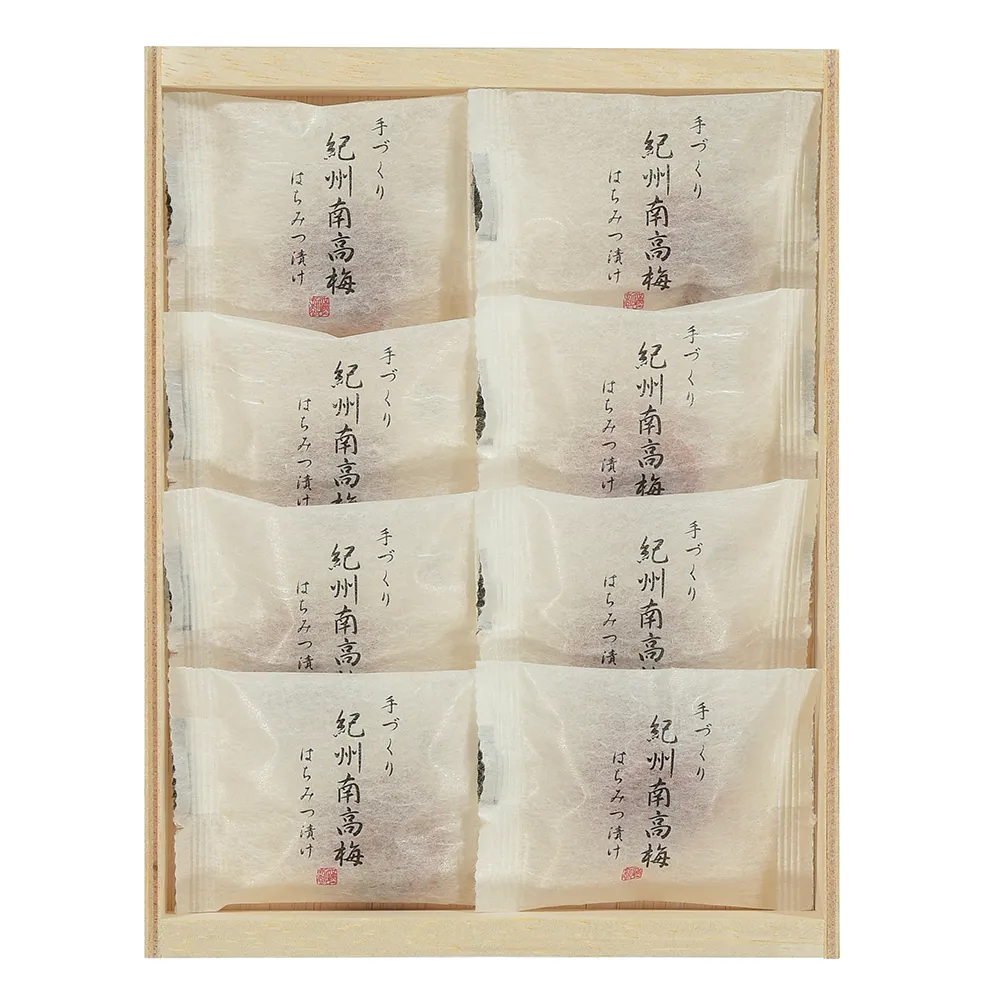 手づくり
紀州南高梅
はちみつ漬け
手づくり
紀州南高梅
はちみつ漬け
手づくり
紀州南高梅
はちみつ漬け
手づくり
紀州南高梅
はちみつ漬
手づくり
紀州南高
はちみつ漬
手づくり
紀州南高
はちみつ漬
手づくり
紀州南高梅
はちみつ漬け
手づくり
紀州南高梅
はちみつ漬け